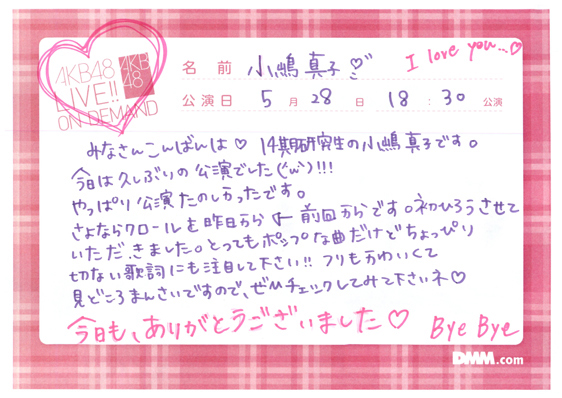 AKB48
LIVE!!
ON DEMAND
AKB
48
名前 小嶋 真子
I love you...♡
公演日 5月28日 18:30公演
みなさんこんばんは♡ 14期研究生の小嶋真子です。
今日は久しぶりの公演でした(･ω･)!!!
やっぱり公演たのしかったです。
さよならクロールを昨日から ← 前回からです。初ひろうさせて
いただきました。とってもポップな曲だけどちょっぴり
切ない歌詞にも注目して下さい!! フリもかわいくて
見どころまんさいですので、ぜひチェックしてみて下さいネ♡
今日も、ありがとうございました♡ Bye Bye
DMM.com